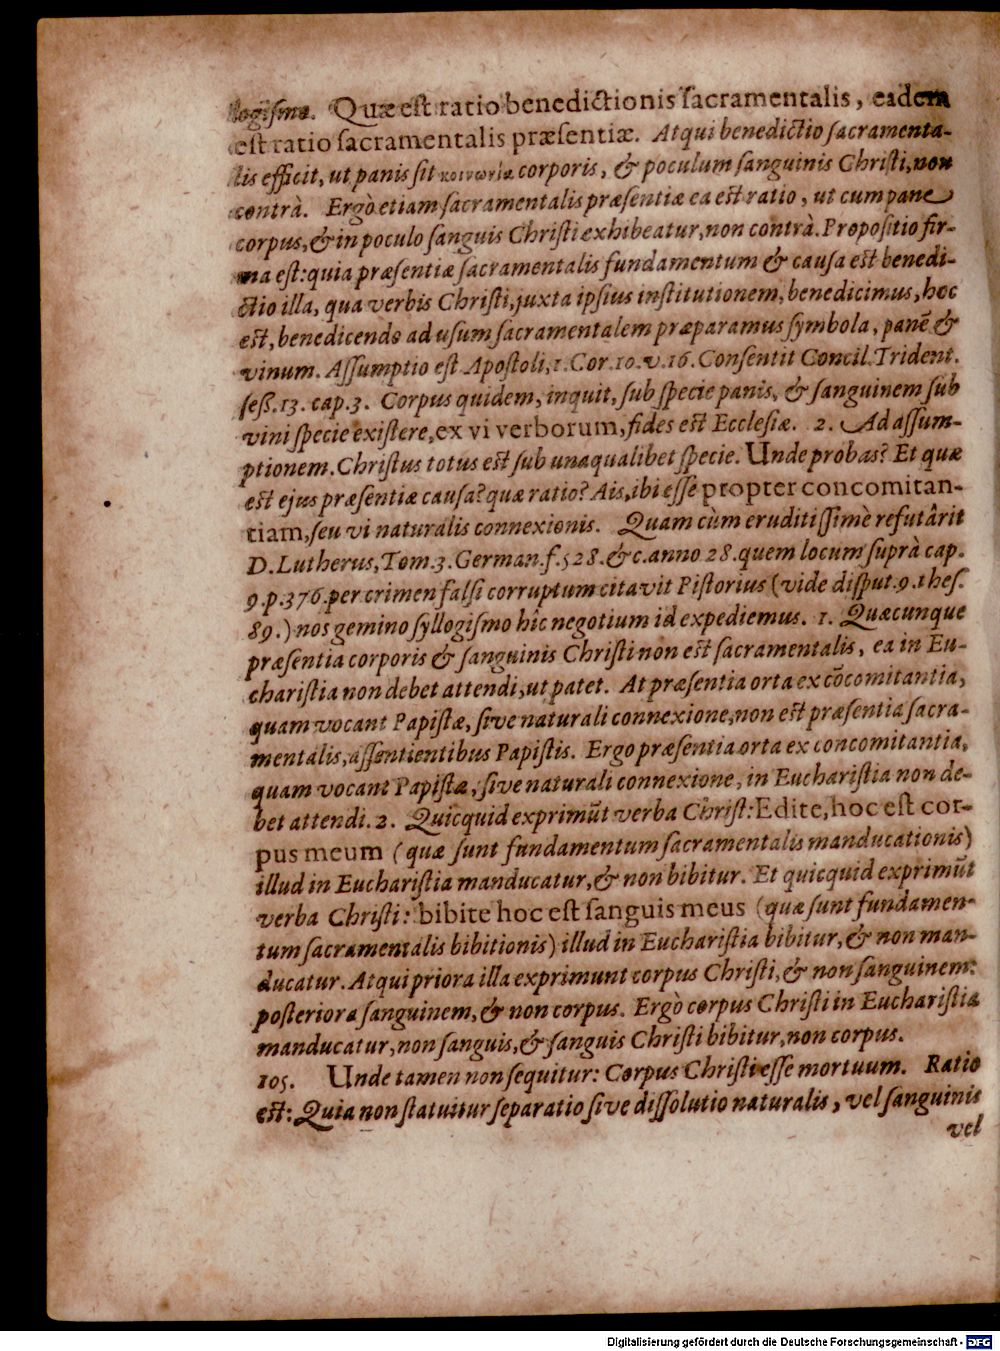 logismo. Quæ est ratio benedictionis sacramentalis, eadem
est ratio sacramentalis præsentiæ. Atqui benedictio sacramenta-
lis efficit, ut panis sit κοινωνία corporis, & poculum sanguinis Christi, non
contrà. Ergò etiam sacramentalis præsentiæ ea est ratio, ut cum pane
corpus, & in poculo sanguis Christi exhibeatur, non contrà. Propositio fir-
ma est: quia præsentiæ sacramentalis fundamentum & causa est benedi-
ctio illa, qua verbis Christi, juxta ipsius institutionem, benedicimus, hoc
est, benedicendo ad usum sacramentalem præparamus symbola, panē &
vinum. Assumptio est Apostoli, 1. Cor. 10. v. 16. Consentit Concil. Trident.
seß. 13. cap. 3. Corpus quidem, inquit, sub specie panis, & sanguinem sub
vini specie existere, ex vi verborum, fides est Ecclesiæ. 2. Ad assum-
ptionem. Christus totus est sub unaqualibet specie. Unde probas? Et quæ
est ejus præsentiæ causa? quæ ratio? Ais, ibi esse propter concomitan-
tiam, seu vi naturalis connexionis. Quam cùm eruditissimè refutârit
D. Lutherus, Tom. 3. German. f. 528. &c. anno 28. quem locum suprà cap.
9. p. 376. per crimen falsi corruptum citavit Pistorius (vide disput. 9. thes.
89.) nos gemino syllogismo hîc negotium id expediemus. 1. Quæcunque
præsentia corporis & sanguinis Christi non est sacramentalis, ea in Eu-
charistia non debet attendi, ut patet. At præsentia orta ex cōcomitantia,
quam vocant Papistæ, sive naturali connexione, non est præsentia sacra-
mentalis, assentientibus Papistis. Ergo præsentia orta ex concomitantia,
quam vocant Papistæ, sive naturali connexione, in Eucharistia non de-
bet attendi. 2. Quicquid exprimūt verba Christi: Edite, hoc est cor-
pus meum (quæ sunt fundamentum sacramentalis manducationis)
illud in Eucharistia manducatur, & non bibitur. Et quicquid exprimūt
verba Christi: bibite hoc est sanguis meus (quæ sunt fundamen-
tum sacramentalis bibitionis) illud in Eucharistia bibitur, & non man-
ducatur. Atqui priora illa exprimunt corpus Christi, & non sanguinem:
posteriora sanguinem, & non corpus. Ergò corpus Christi in Eucharistia
manducatur, non sanguis, & sanguis Christi bibitur, non corpus.
105. Unde tamen non sequitur: Corpus Christi esse mortuum. Ratio
est: Quia non statuitur separatio sive dissolutio naturalis, vel sanguinis
vel
Digitalisierung gefördert durch die Deutsche Forschungsgemeinschaft - DFG